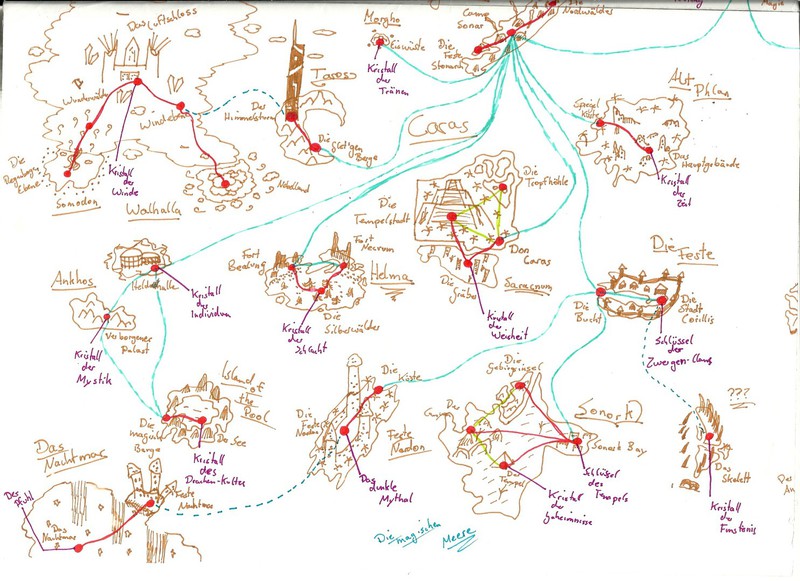 Das Luftschloss
Wunderwälder
Die
Regenbogen
Ebene
Somoden
Kristall
der
Winde
Walhalla
Nordland
Taross
Der
Himmelsturm
Die
Berge
Margho
Eiswüste
Kristall
der
Tränen
Camp
Sonar
Die
Feste
Caras
Alt
Philas
Spiegel
Küste
Das Hauptgebäude
Kristall
der
Zeit
Die
Tempelstadt
Die
Tropfhöhle
Don
Caras
Die
Gräber
Kristall
der
Weisheit
Fort
Fort
Necrom
Helma
Die
Silberwälder
Kristall
der
Schlacht
Ankhos
Heldenhalle
Kristall
des
Individium
Verborgener
Palast
Kristall
der
Mystik
Die Feste
Die
Bucht
Die
Stadt
Corillis
Schlüssel
der
Zwergen-Clans
Island of
the
Pool
Die
magische
Barge
Do See
Kristall
des
Drachen-Kultes
Die
Küste
Die
Feste
Nardon
Feste
Nardon
Das
dunkle
Mythal
Die
Gebirginsel
Sonork
Sonork Bay
Der
Tempel
Schlüssel
des
Tempels
Kristall
der
Geheimnisse
???
Das
Skelett
Kristall
der
Finsternis
Das
Nachtmar
Der
Stuhl
Das
Nachtmar
Feste
Nachtmar
Die magischen
Meere